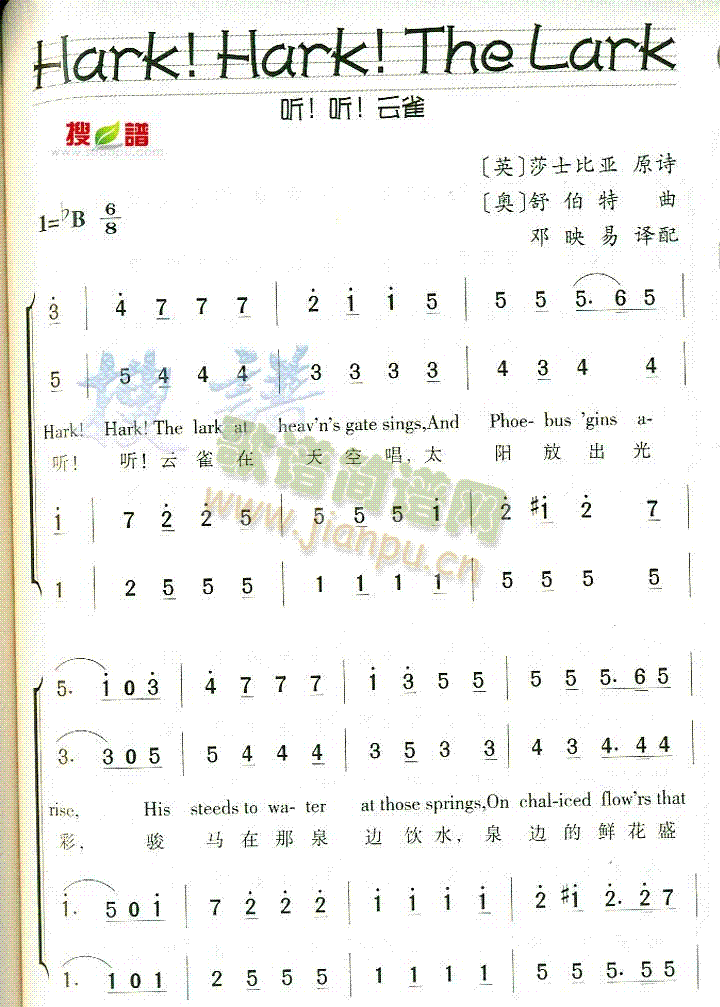 Hark! Hark! The Lark
听！听！云雀
搜 谱
〔英〕莎士比亚 原诗
〔奥〕舒伯特 曲
邓映易 译配
1=♭B 6/8
3̇ | 4̇ 7 7 7 | 2̇ 1̇ 1̇ 5 | 5 5 5. 6 5 |
5 | 5 4 4 4 | 3 3 3 3 | 4 3 4 4 |
Hark! Hark! The lark at heav'n's gate sings,And Phoe- bus 'gins a-
听！ 听！云雀在 天空唱，太 阳放出光
1̇ | 7 2̇ 2̇ 5 | 5 5 5 1̇ | 2̇ #1̇ 2̇ 7 |
1 | 2 5 5 5 | 1 1 1 1 | 5 5 5 5 |
歌谱简谱网
www.jianpu.cn
5. 1̇ 0 3̇ | 4̇ 7 7 7 | 1̇ 3̇ 5 5 | 5 5 5. 6 5 |
3. 3 0 5 | 5 4 4 4 | 3 5 3 3 | 4 3 4. 4 4 |
rise, His steeds to wa- ter at those springs,On chal-iced flow'rs that
彩， 骏 马在那泉 边饮水，泉 边的鲜花盛
1̇. 5 0 1̇ | 7 2̇ 2̇ 2̇ | 1̇ 1̇ 1̇ 1̇ | 2̇ #1̇ 2̇. 2̇ 7
1. 1 0 1 | 2 5 5 5 | 1 1 1 1 | 5 5 5. 5 5